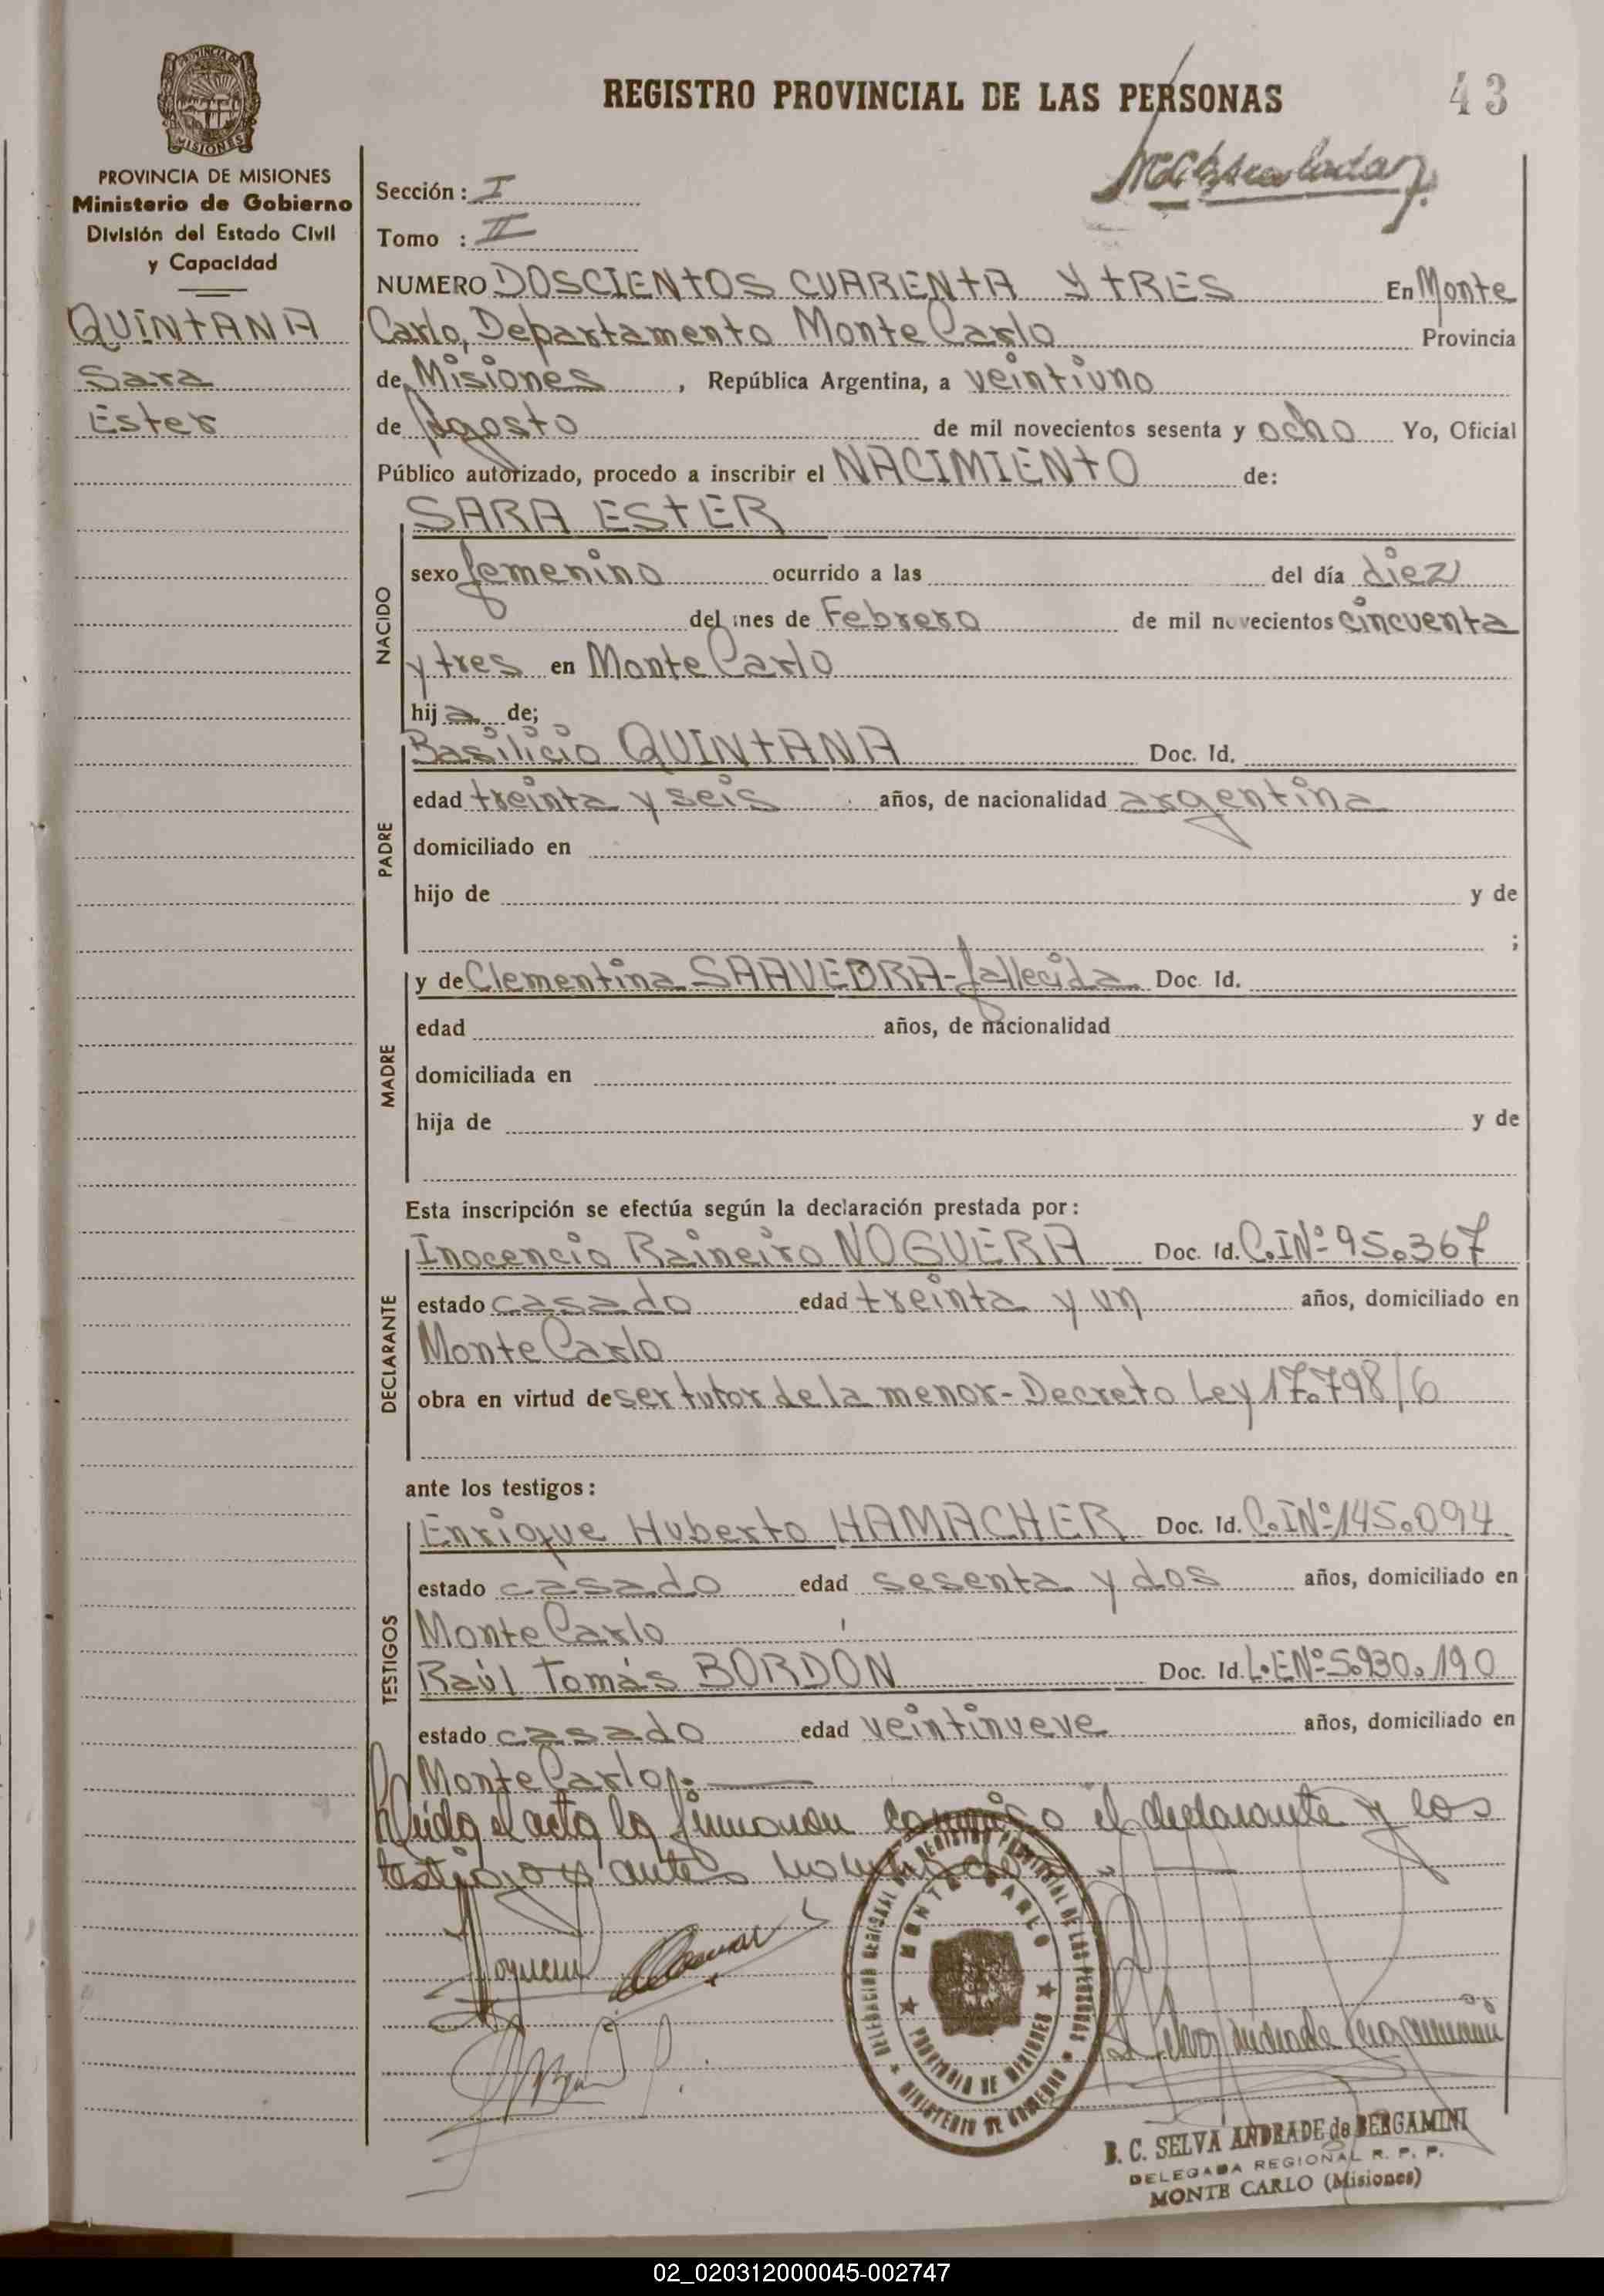 REGISTRO PROVINCIAL DE LAS PERSONAS
43
PROVINCIA DE MISIONES
PROVINCIA DE MISIONES
Ministerio de Gobierno
División del Estado Civil
y Capacidad
QUINTANA
Sara
Ester
Sección: I
Tomo : II
NUMERO DOSCIENTOS CUARENTA Y TRES En Monte
Carlo, Departamento Monte Carlo Provincia
de Misiones, República Argentina, a veintiuno
de Agosto de mil novecientos sesenta y ocho Yo, Oficial
Público autorizado, procedo a inscribir el NACIMIENTO de:
NACIDO
SARA ESTER
sexo femenino ocurrido a las del día diez
del mes de Febrero de mil novecientos cincuenta
y tres en Monte Carlo
hija de;
PADRE
Basilicio QUINTANA Doc. Id.
edad treinta y seis años, de nacionalidad argentina
domiciliado en
hijo de y de
;
MADRE
y de Clementina SAAVEDRA-fallecida Doc. Id.
edad años, de nacionalidad
domiciliada en
hija de y de
Esta inscripción se efectúa según la declaración prestada por:
DECLARANTE
Inocencio Raineiro NOGUERA Doc. Id. C.INº 95.367
estado casado edad treinta y un años, domiciliado en
Monte Carlo
obra en virtud de ser tutor de la menor-Decreto Ley 17.798/6
ante los testigos:
TESTIGOS
Enrique Huberto HAMACHER Doc. Id. C.INº 145.094
estado casado edad sesenta y dos años, domiciliado en
Monte Carlo
Raúl Tomás BORDON Doc. Id. L.ENº 5.930.190
estado casado edad veintinueve años, domiciliado en
Monte Carlo
Leida el acta la firmaron conmigo el declarante y los
testigos antes
DELEGACION REGIONAL DEL REGISTRO PROVINCIAL DE LAS PERSONAS
MONTE CARLO
PROVINCIA DE MISIONES
MINISTERIO DE GOBIERNO
B. C. SELVA ANDRADE de BERGAMINI
DELEGADA REGIONAL R. P. P.
MONTE CARLO (Misiones)
02_020312000045-002747